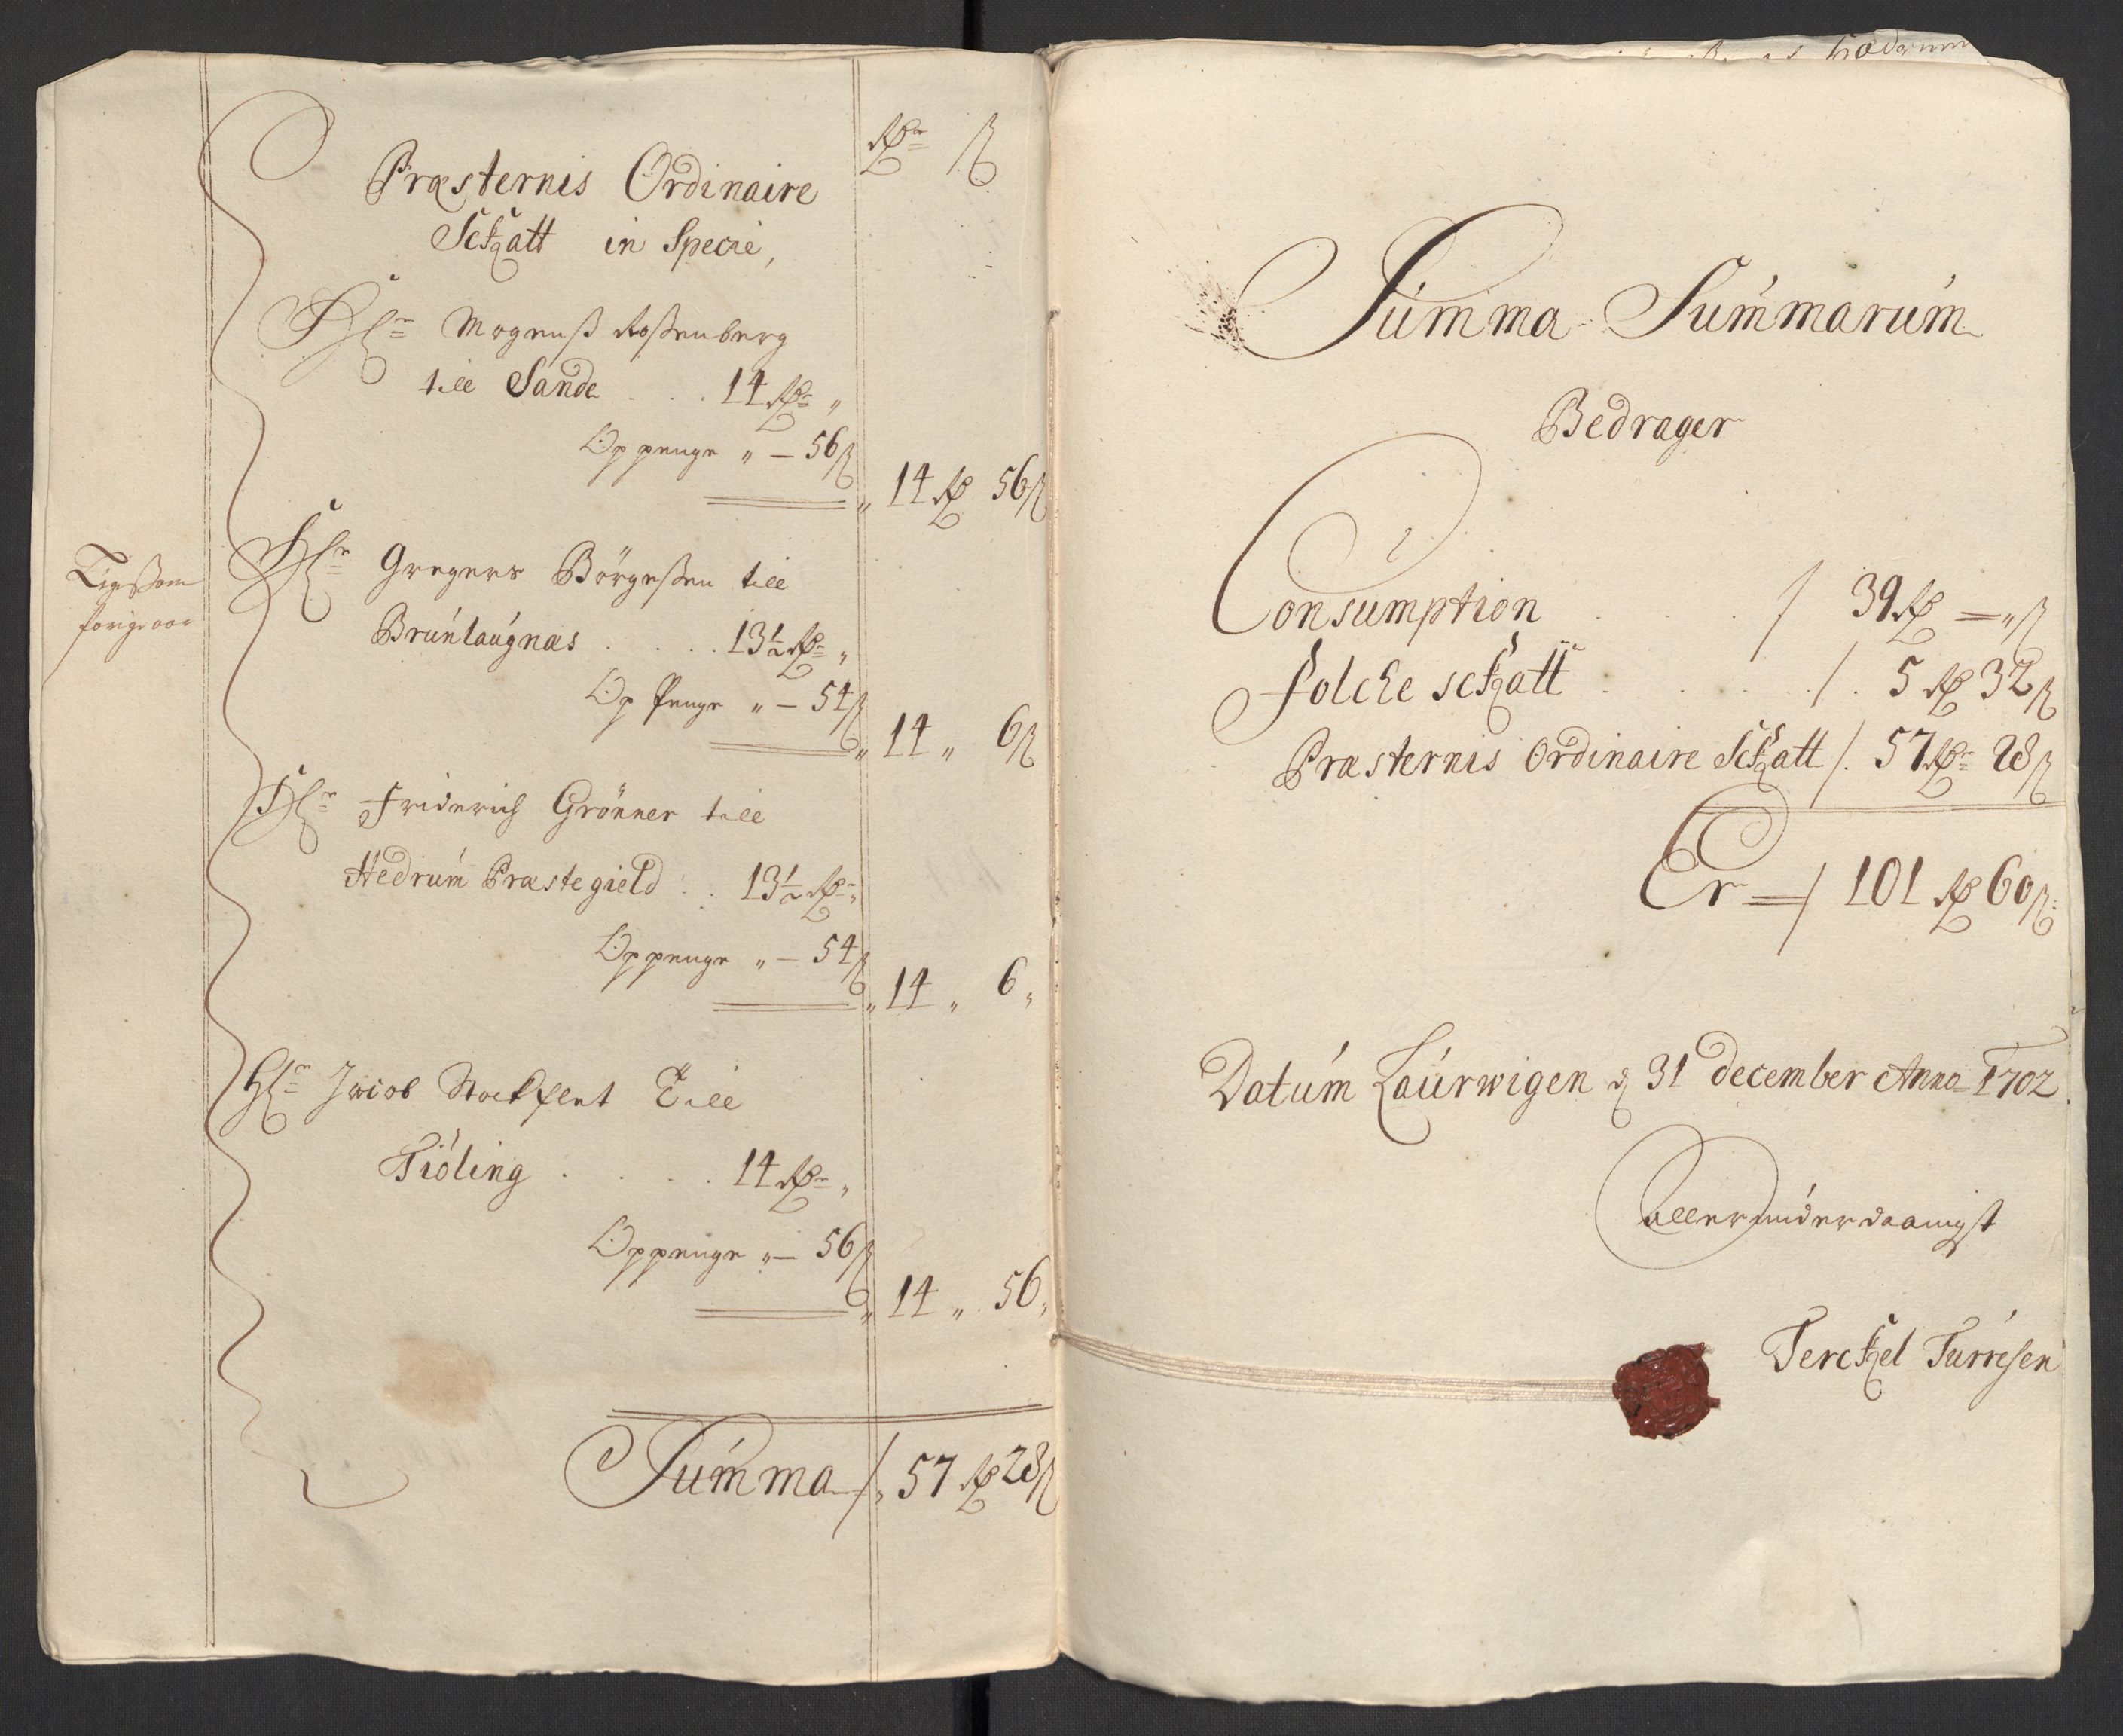 Rdr ß
Præsternis Ordinaire
Schatt in Specie,
Hr Mogenß Roßenberg
till Sande . . . 14 Rdr "
Oppenge " — 56 ß
" 14 Rd 56 ß
Ligesom
forige aar
Hr Gregers Börgeßen till
Brúnlaúgnæs . . . . 13½ Rdr "
Op Penge " — 54 ß
" 14 " 6 ß
Hr Friderich Grönner till
Hedrúm Præstegield . . 13½ Rdr "
Oppenge " — 54 ß
" 14 " 6 "
Hr Jacob Stockflet Till
Tiöling . . . . 14 Rdr "
Oppenge " — 56 ß
" 14 " 56 "
Súmma / 57 Rd 28 ß
Súmma Súmmarúm
Bedrager
Consumption . . . / 39 Rd — " ß
Folche schatt . . . . . / . 5 Rd 32 ß
Præsternis Ordinaire Schatt / . 57 Rdr 28 ß
Er — / 101 Rd 60 ß
Datúm Laúrwigen d 31 december Anno 1702
allerunderdaanigst
Terchel Túrresen